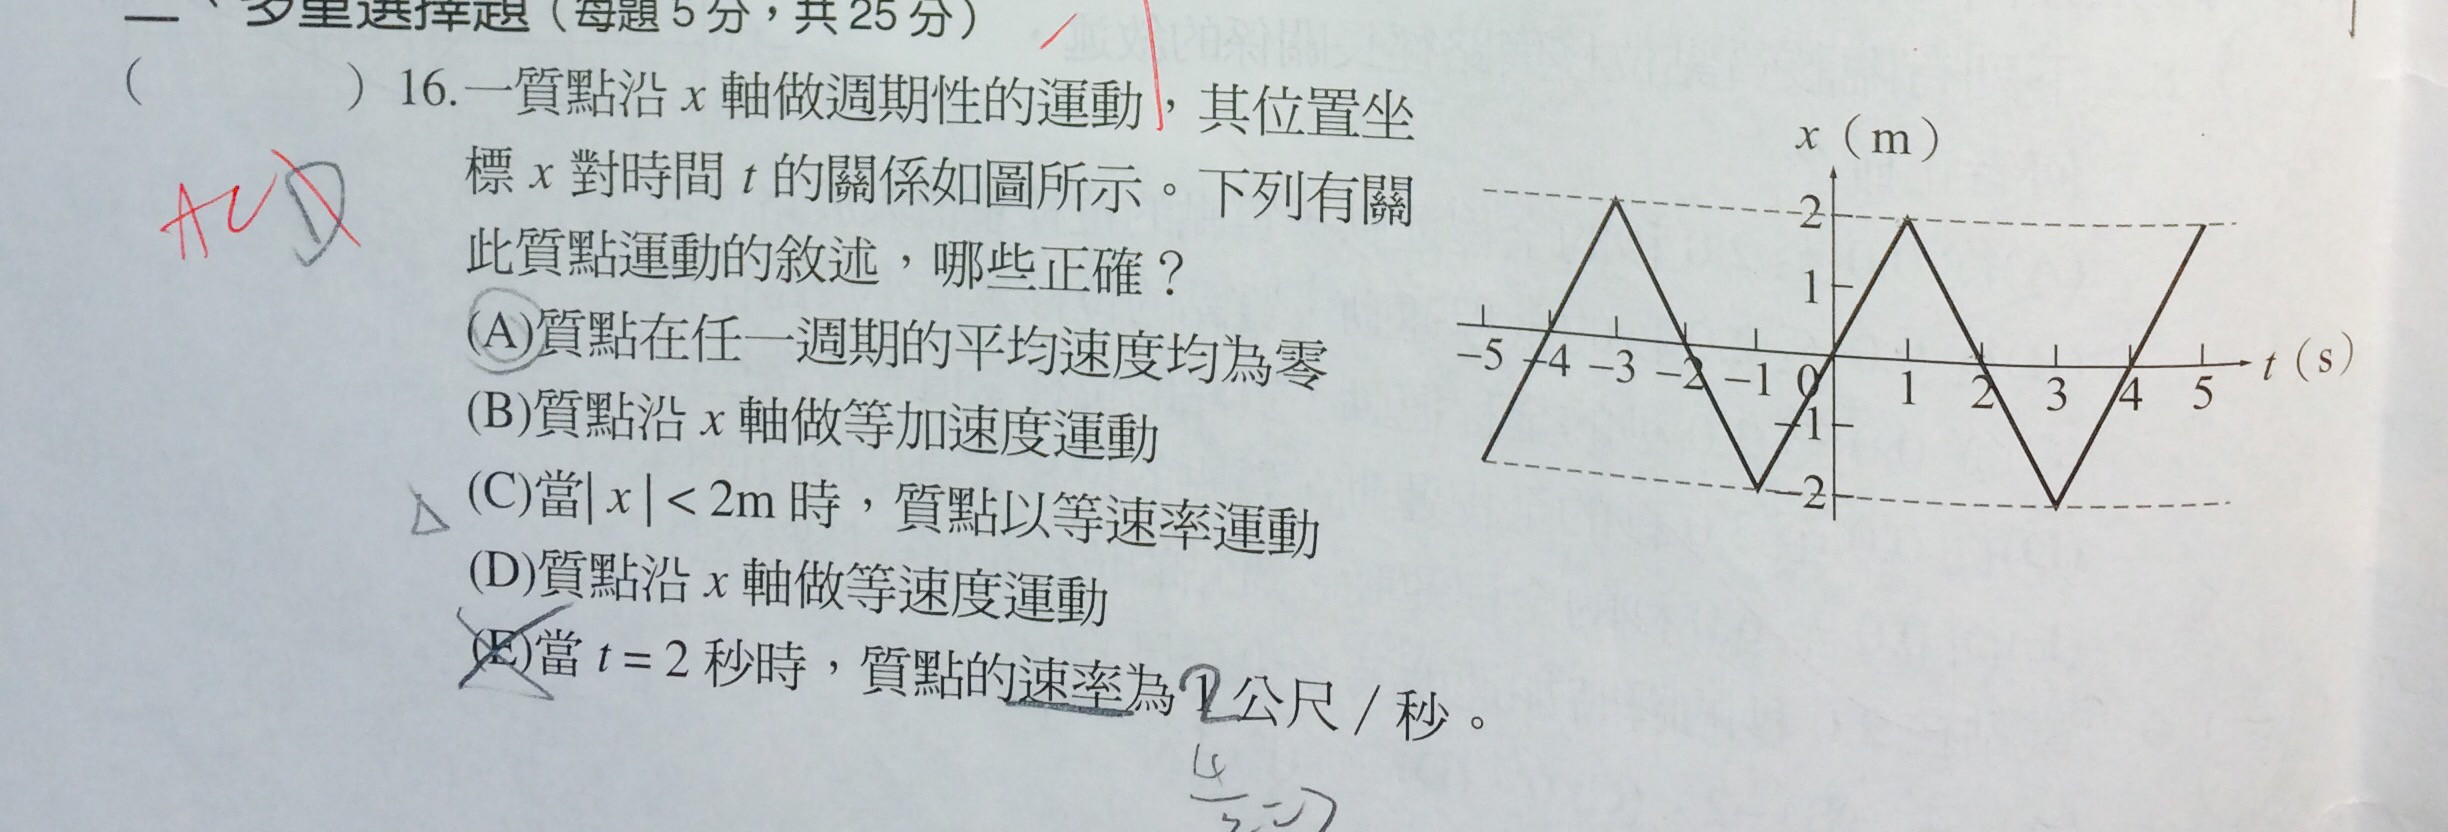 二、多重選擇題（每題5分，共25分）
（ ）16.一質點沿 x 軸做週期性的運動，其位置坐
標 x 對時間 t 的關係如圖所示。下列有關
此質點運動的敘述，哪些正確？
(A)質點在任一週期的平均速度均為零
(B)質點沿 x 軸做等加速度運動
(C)當| x |< 2m 時，質點以等速率運動
(D)質點沿 x 軸做等速度運動
(E)當 t = 2 秒時，質點的速率為2公尺 / 秒。
ACD
x（m）
2
1
-5 -4 -3 -2 -1 0 1 2 3 4 5 t（s）
-1
-2
4